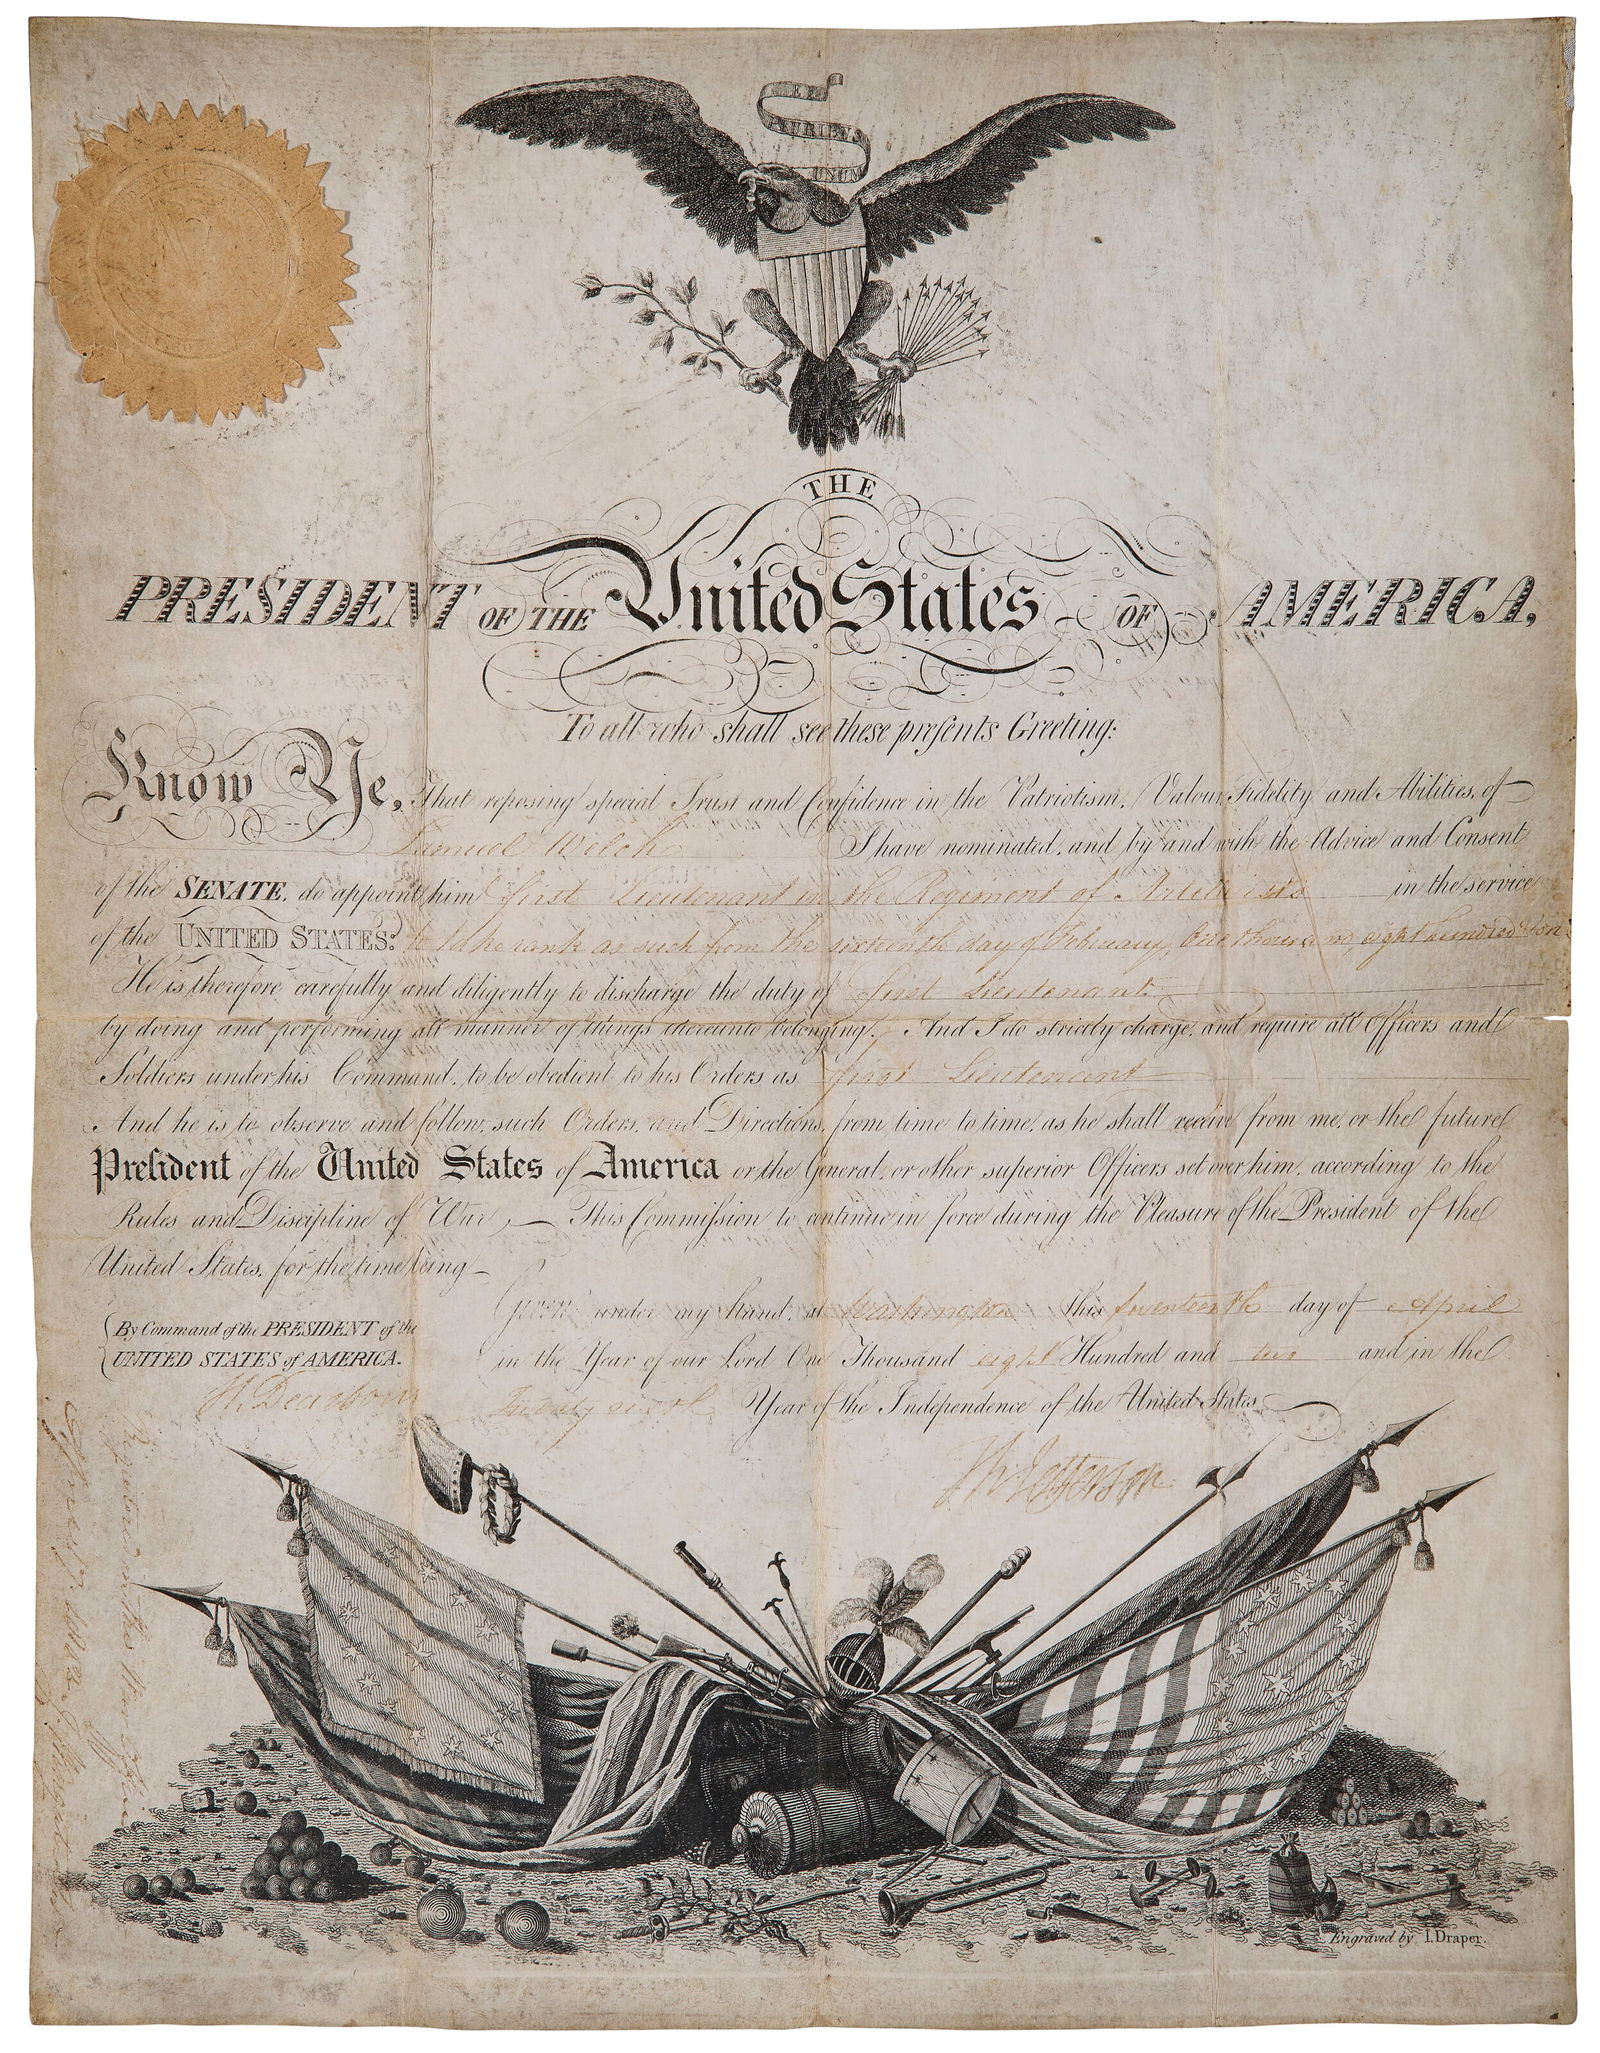 E PLURIBUS UNUM
THE
PRESIDENT OF THE United States OF AMERICA,
To all who shall see these presents Greeting:
Know Ye, That reposing special Trust and Confidence in the Patriotism, Valour, Fidelity and Abilities, of
Samuel Welch I have nominated, and by and with the Advice and Consent
of the SENATE, do appoint him first Lieutenant in the Regiment of Artillerists in the service
of the UNITED STATES: to take rank as such from the sixteenth day of February, One thousand, eight hundred & one
He is, therefore carefully and diligently to discharge the duty of first Lieutenant
by doing and performing all manner of things thereunto belonging. And I do strictly charge, and require all Officers and
Soldiers, under his Command, to be obedient to his Orders as first Lieutenant
And he is to observe and follow, such Orders, and Directions, from time to time, as he shall receive from me, or the future
President of the United States of America or the General, or other superior Officers set over him, according to the
Rules and Discipline of War, This Commission to continue in force during the Pleasure of the President of the
United States, for the time being
Given under my Hand, at Washington this seventeenth day of April
in the Year of our Lord One Thousand eight Hundred and two and in the
Twenty sixth Year of the Independence of the United States
By Command of the PRESIDENT of the
UNITED STATES of AMERICA.
H. Dearborn
Th: Jefferson
Registered in the War office
Engraved by I. Draper.